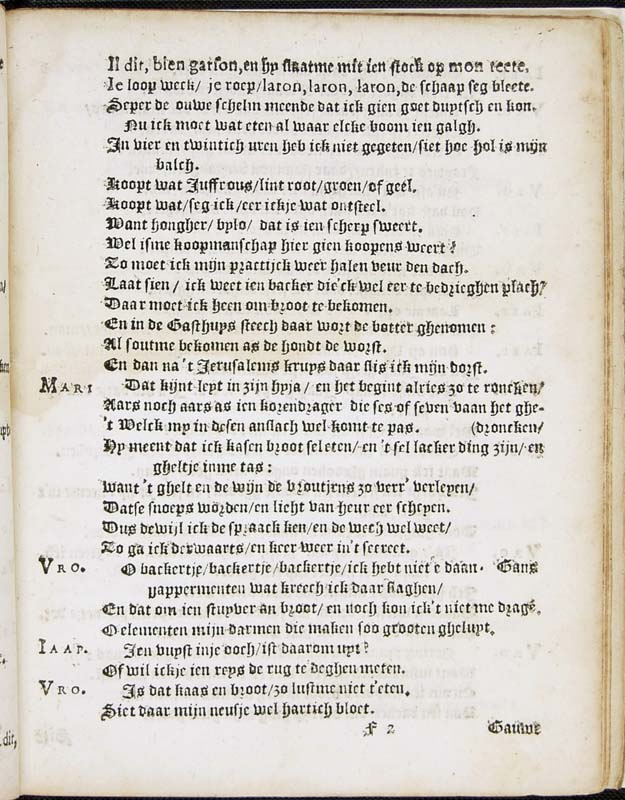 Il dit, bien garson, en hy slaatme mit ien stock op mon teete,
Ie loop weck/ je roep/ laron, laron, laron, de schaap seg bleete.
Seper de ouwe schelm meende dat ick gien goet duytsch en kon.
Nu ick moet wat eten al waar elcke boom ien galgh.
In vier en twintich uren heb ick niet gegeten/ siet hoe hol is mijn
balch.
Koopt wat Juffrous/ lint root/ groen/ of geel.
Koopt wat/ seg ick/ eer ickje wat ontsteel.
Want hongher/ bylo/ dat is ien scherp sweert.
Wel isme koopmanschap hier gien koopens weert?
Zo moet ick mijn practijck weer halen veur den dach.
Laat sien/ ick weet ien backer die'ck wel eer te bedrieghen plach?
Daar moet ick heen om broot te bekomen.
En in de Gasthuys steech daar wort de botter ghenomen:
Al soutme bekomen as de hondt de worst.
En dan na 't Jerusalems kruys daar slis ick mijn dorst.
MARI Dat kijnt leyt in zijn hyja/ en het begint alries zo te roncken/
Aars noch aars as ien korendrager die ses of seven vaan het ghe-
't Welck my in desen anslach wel komt te pas. (droncken/
Hy meent dat ick kasen broot sel eten/ en 't sel lacker ding zijn/ en
gheltje inme tas:
Want 't ghelt en de wijn de broutjens zo verr' verleyen/
Datse snoeps worden/ en licht van heur eer scheyen.
Dus dewijl ick de spraack ken/ en de wech wel weet/
Zo ga ick derwaarts/ en keer weer in't secreet.
VRO. O backertje/ backertje/ backertje/ ick hebt niet e daan. Gans
pappermenten wat kreech ick daar slaghen/
En dat om ien stuyver an broot/ en noch kon ick't niet me drage.
O elementen mijn darmen die maken soo grooten gheluyt.
IAAP. Ien vuyst inje ooch/ ist daarom uyt?
Of wil ickje ien reys de rug te deghen meten.
VRO. Is dat kaas en broot/ zo lustme niet t'eten.
Siet daar mijn neusje wel hartich bloet.
F 2 Gauwe